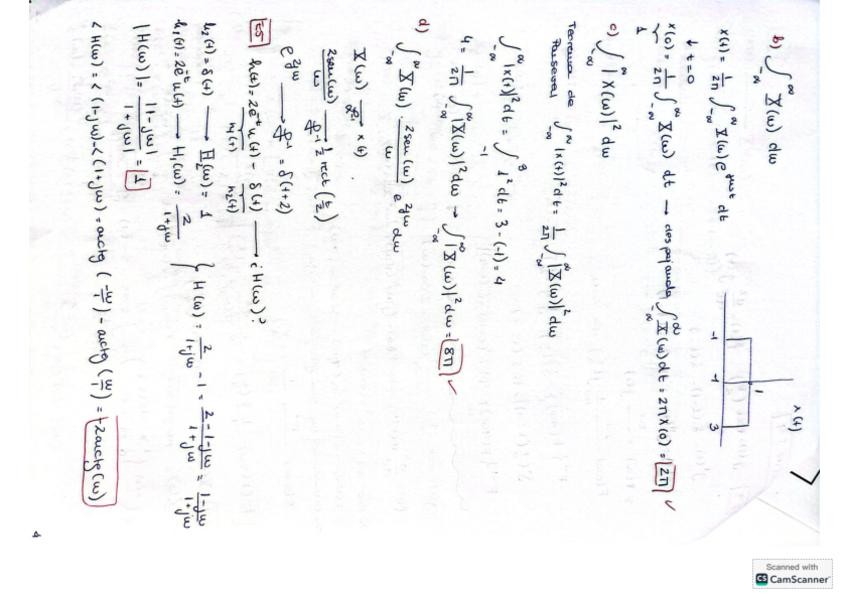 b) ∫_{-∞}^{∞} X(ω) dω
x(t) = 1/2π ∫_{-∞}^{∞} X(ω) e^{jωt} dt
↓ t=0
x(0) = 1/2π ∫_{-∞}^{∞} X(ω) dt → despejando ∫_{-∞}^{∞} X(ω) dt = 2π x(0) = 2π ✓
1
x(t)
1
-1 -1 3
c) ∫_{-∞}^{∞} |X(ω)|² dω
Teorema de Parseval ∫_{-∞}^{∞} |x(t)|² dt = 1/2π ∫_{-∞}^{∞} |X(ω)|² dω
∫_{-∞}^{∞} |x(t)|² dt = ∫_{-1}^{3} 1² dt = 3-(-1) = 4
4 = 1/2π ∫_{-∞}^{∞} |X(ω)|² dω → ∫_{-∞}^{∞} |X(ω)|² dω = 8π ✓
d) ∫_{-∞}^{∞} X(ω) · 2sen(ω)/ω e^{2jω} dω
X(ω) → x(t)
2sen(ω)/ω → 1/2 rect(t/2)
e^{2jω} → = δ(t+2)
E5 h(t) = 2e^{-t} u(t) - δ(t) → ¿H(ω)?
h₁(t) h₂(t)
h₂(t) = δ(t) → H₂(ω) = 1
h₁(t) = 2e^{-t} u(t) → H₁(ω) = 2/(1+jω) { H(ω) = 2/(1+jω) - 1 = (2-1-jω)/(1+jω) = (1-jω)/(1+jω)
|H(ω)| = |1-jω|/|1+jω| = 1
<H(ω) = <(1-jω) - <(1+jω) = arctg(-ω/1) - arctg(ω/1) = -2arctg(ω)
4
Scanned with
CS CamScanner